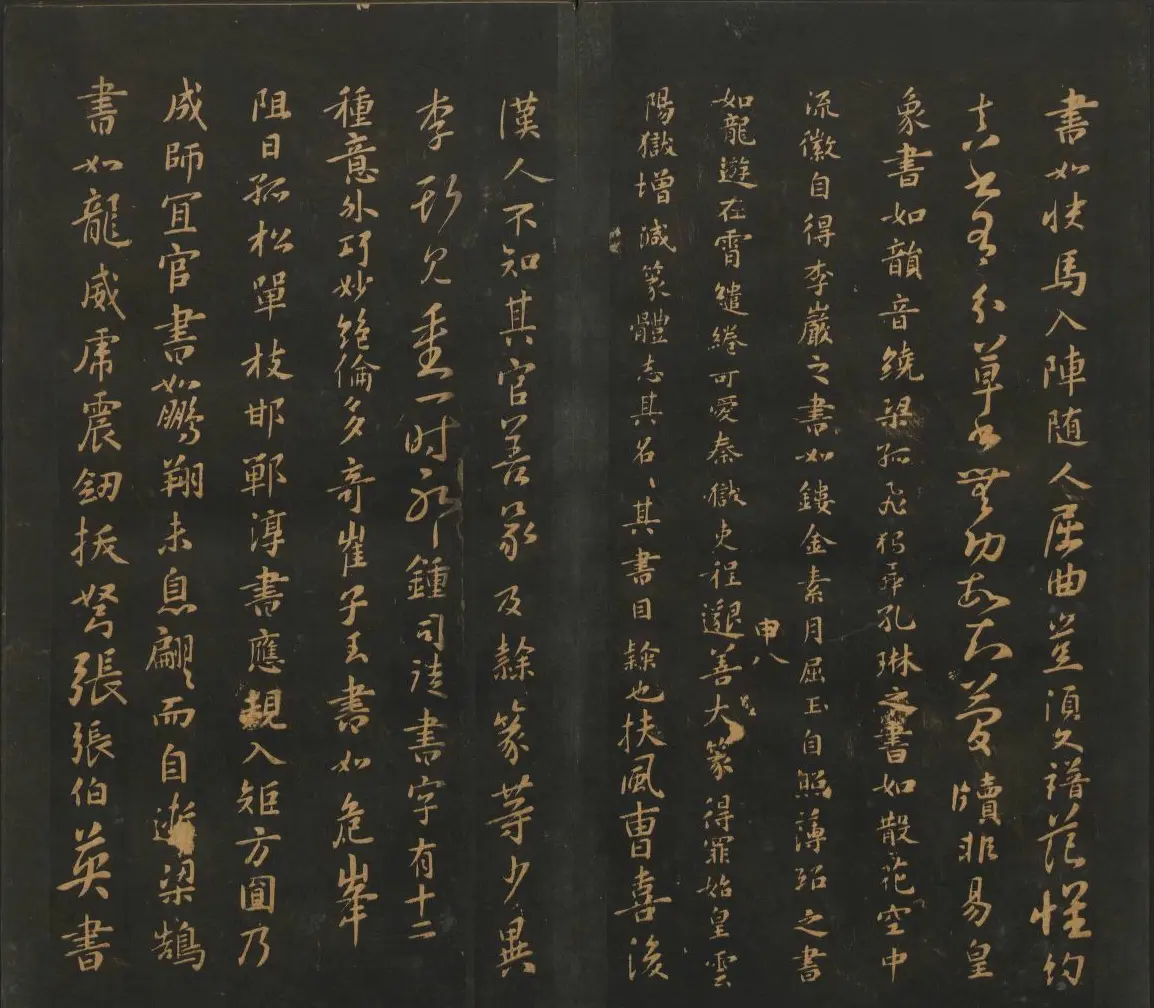 書如快馬入陣随人屈曲豈須文譜范懷約
真書有分草書無功故知蕳牘非易皇
象書如韻音繞梁孤飛獨舞孔琳之書如散花空中
流徽自得李巖之書如鏤金素月屈玉自照薄紹之書
如龍遊在霄繾綣可愛秦獄吏程邈善大篆得罪始皇雲
申八
陽獄增減篆體志其名、其書曰隸也扶風曹喜後
漢人不知其官善篆及隸篆等少異
李斯見重一時鍾司徒書字有十二
種意外巧妙絕倫多奇崔子玉書如危峯
阻日孤松單枝邯鄲淳書應規入矩方圓乃
成師宜官書如鵬翔未息翩〻而自逝梁鵠
書如龍威虎震劒拔弩張張伯英書